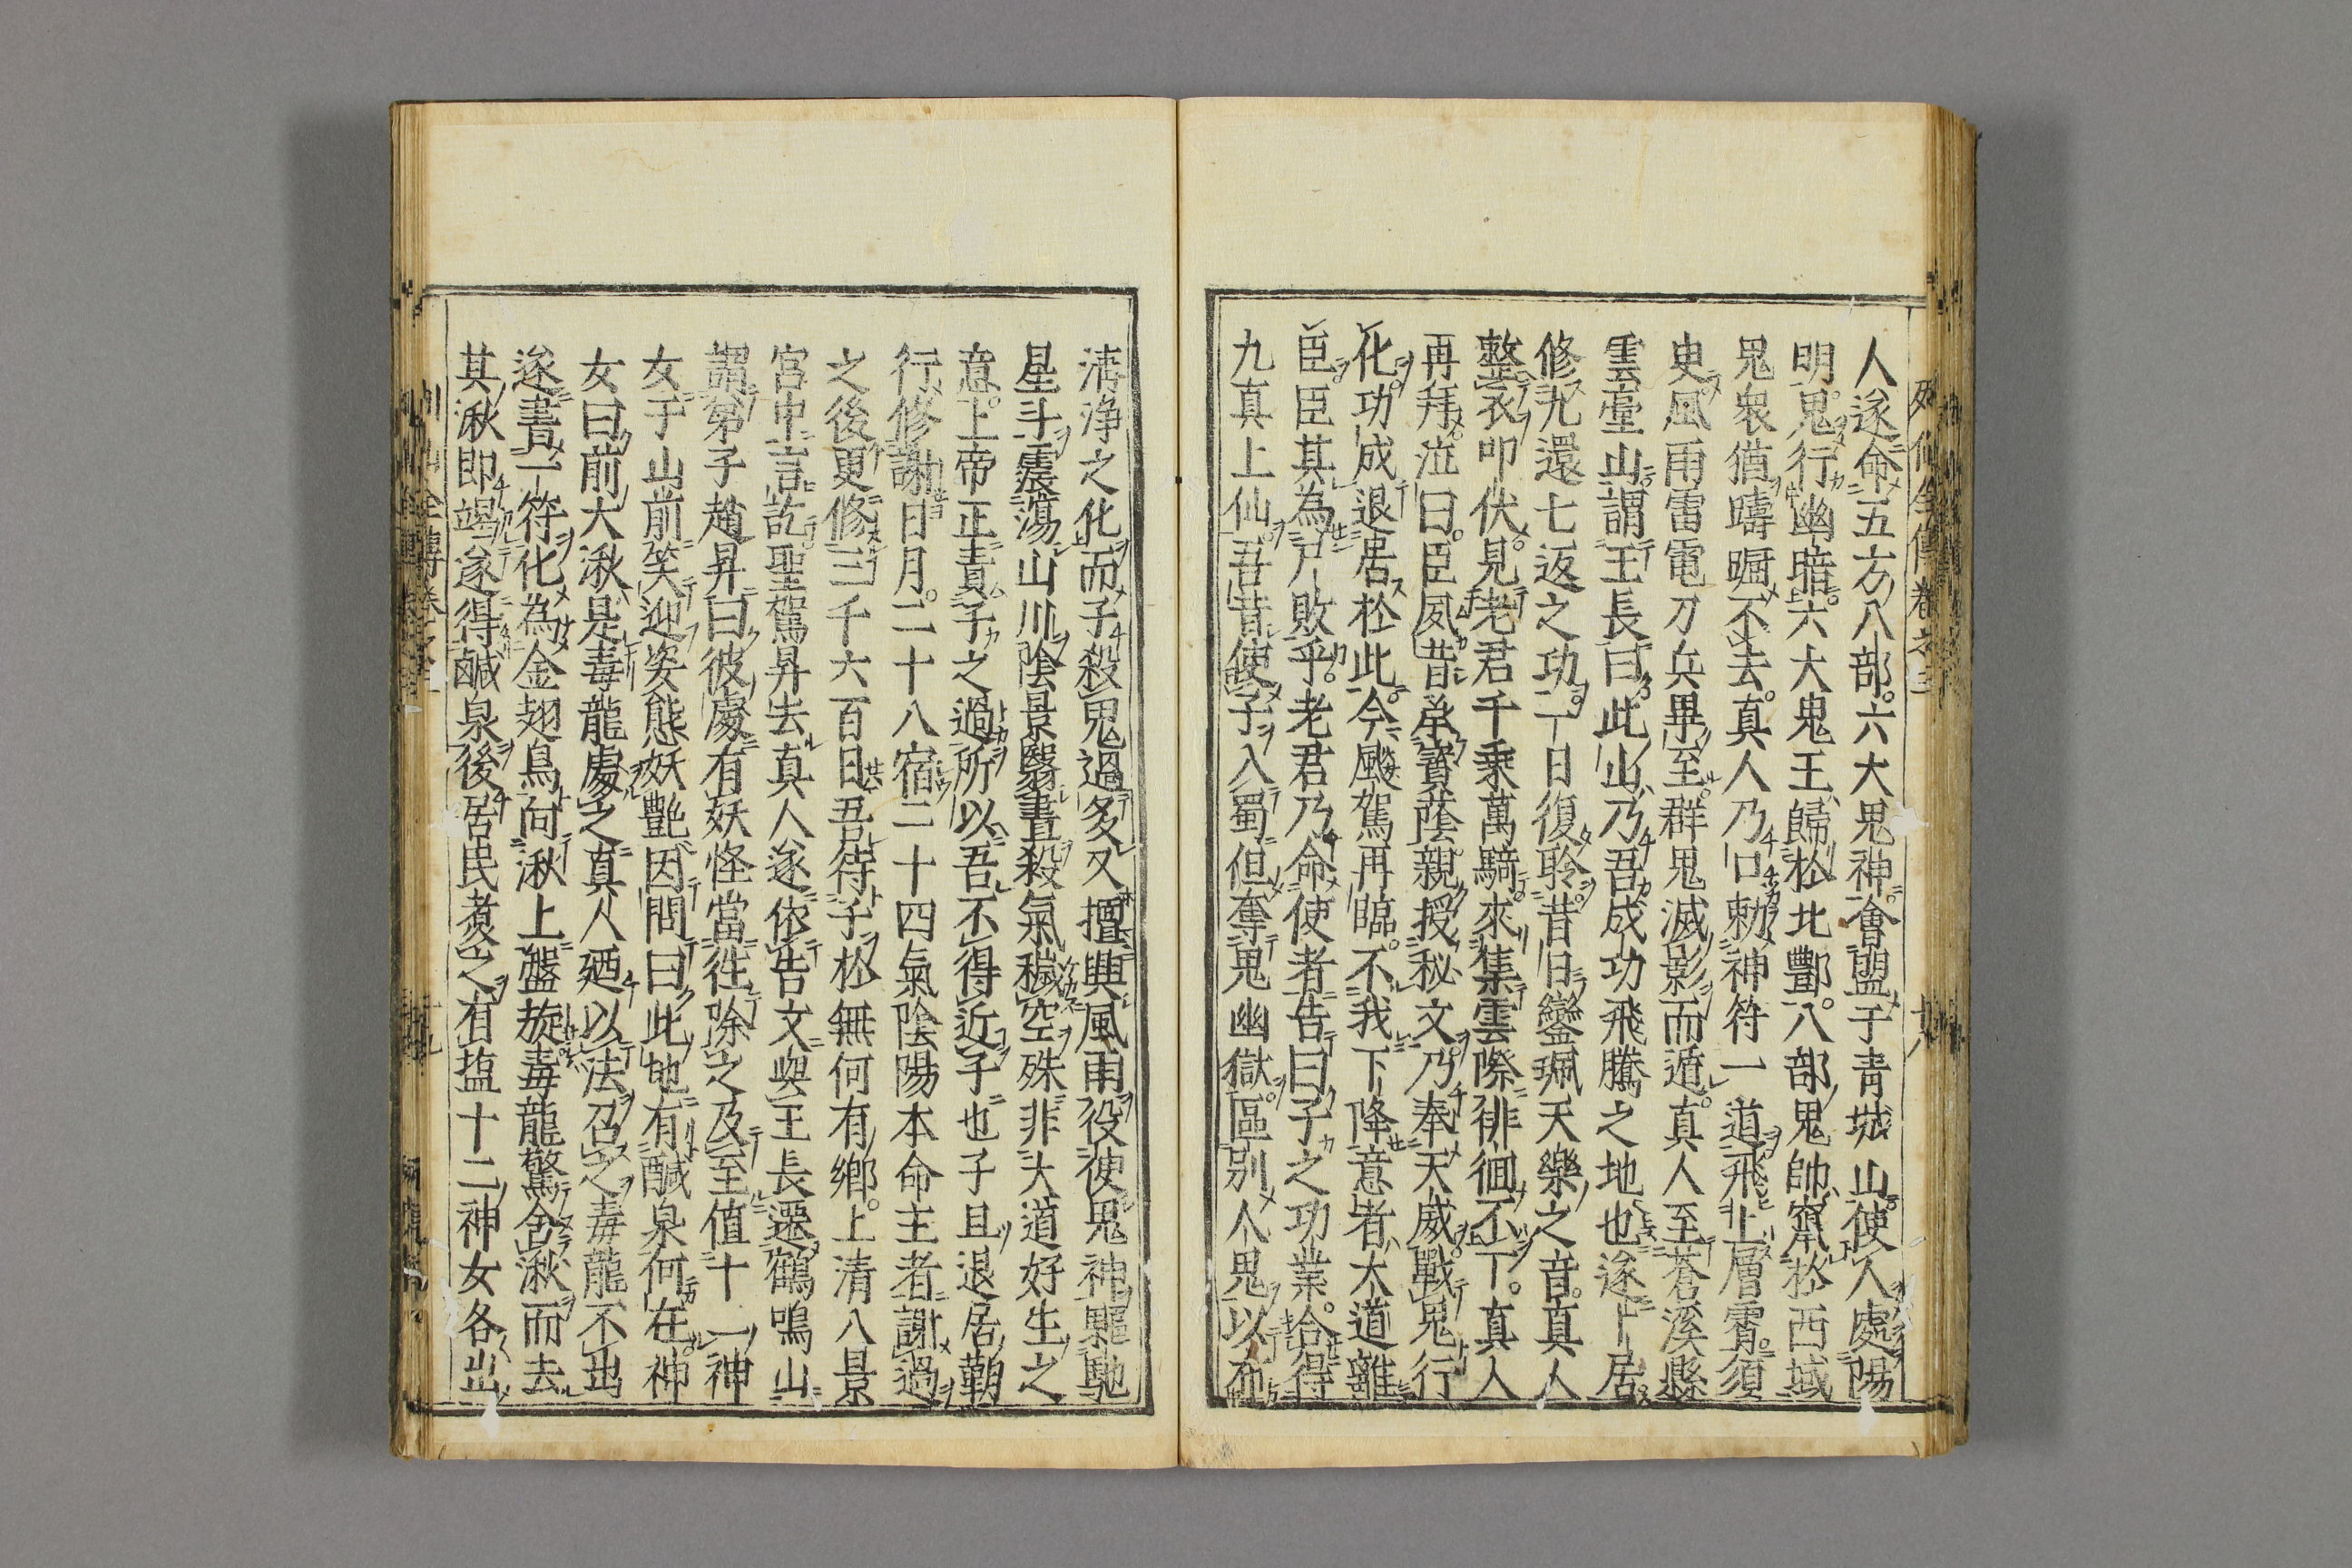 列仙全傳卷之三 十八
人遂命五方八部六大鬼神會盟于青城山使人處陽
明鬼行幽暗六大鬼王歸於北酆八部鬼帥竄於西域
鬼衆猶躊躇不去真人乃口勅神符一道飛上層霄須
臾風雨雷電刀兵畢至群鬼滅影而遁真人至蒼溪縣
雲臺山謂王長曰此山乃吾成功飛騰之地也遂卜居
修九還七返之功一日復聆昔日鑾珮天樂之音真人
整衣叩伏見老君千乘萬騎來集雲際徘徊不下真人
再拜泣曰臣夙昔承寶蔭親授秘文乃奉天威戰鬼行
化功成退居於此今颷駕再臨不我下降意者大道離
臣臣其為尸敗乎老君乃命使者告曰子之功業合得
九真上仙吾昔使子入蜀但奪鬼幽獄區別人鬼以布
清淨之化而子殺鬼過多又擅興風雨役使鬼神驅馳
星斗震蕩山川陰景翳晝殺氣穢空殊非大道好生之
意上帝正責子之過所以吾不得近子也子且退居勤
行修謝日月二十八宿二十四氣陰陽本命主者謝過
之後更修三千六百日吾待子於無何有鄉上清八景
宮中言訖聖駕昇去真人遂依告文與王長遷鶴鳴山
謂弟子趙昇曰彼處有妖怪當往除之及至值十二神
女于山前笑迎姿態妖艷因問曰此地有鹹泉何在神
女曰前大湫是毒龍處之真人廼以法召之毒龍不出
遂書一符化為金翅鳥向湫上盤旋毒龍驚舍湫而去
其湫即竭遂得鹹泉後居民煑之有塩十二神女各出
全傳卷之三 十九